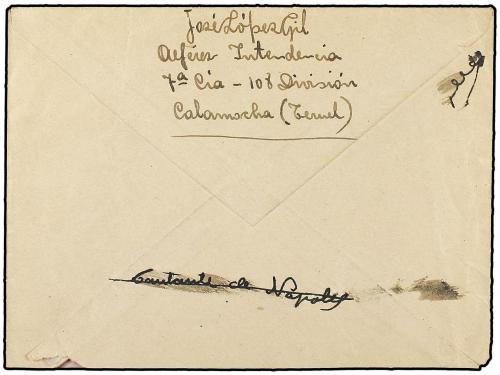 José López Gil
Alférez Intendencia
7ª Cia - 108 División
Calamocha (Teruel)
Cantante de Napoles